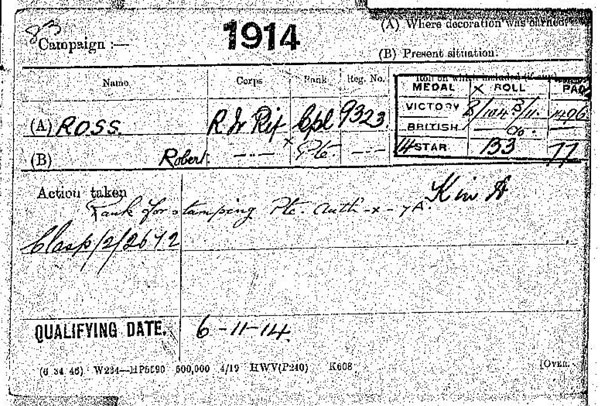 Campaign :— 1914 (A) Where decoration was earned.
(B) Present situation.
Name Corps Rank Reg. No. Roll on which included
MEDAL × ROLL PAGE
(A) ROSS. R Ir Rif Cpl 9323 VICTORY
BRITISH do.
(B) Robert — — × Pte — — 14 STAR 133 77
Action taken Kin A
Rank for stamping Pte. Auth -x- 7A.
Clasp/2/2672
QUALIFYING DATE. 6-11-14.
(6 34 46) W234—HP5590 500,000 4/19 HWV(P240) K608 [OVER.